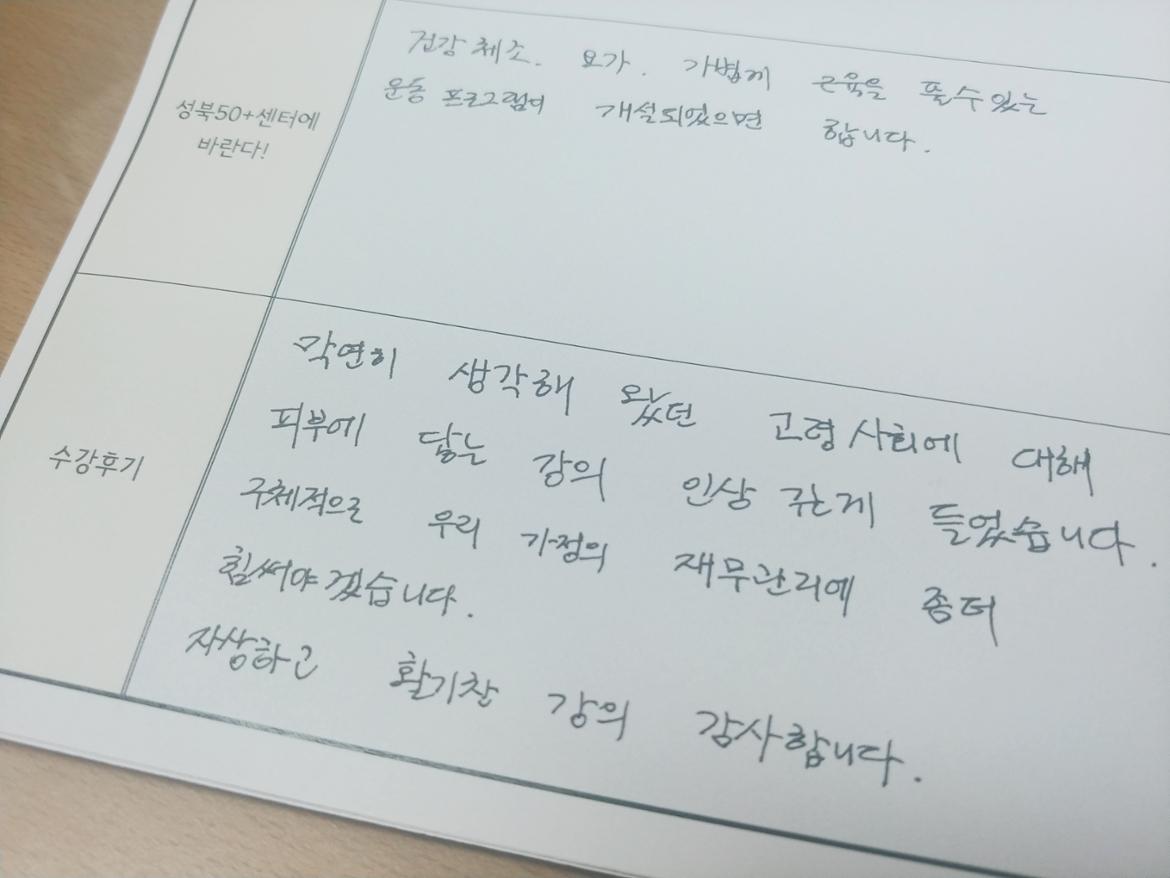 성북50+센터에
바란다!
건강체조. 요가. 가볍게 근육을 풀수있는
운동 프로그램이 개설되었으면 합니다.
수강후기
막연히 생각해 왔던 고령사회에 대해
피부에 닿는 강의 인상 깊게 들었습니다.
구체적으로 우리 가정의 재무관리에 좀더
힘써야겠습니다.
자상하고 활기찬 강의 감사합니다.